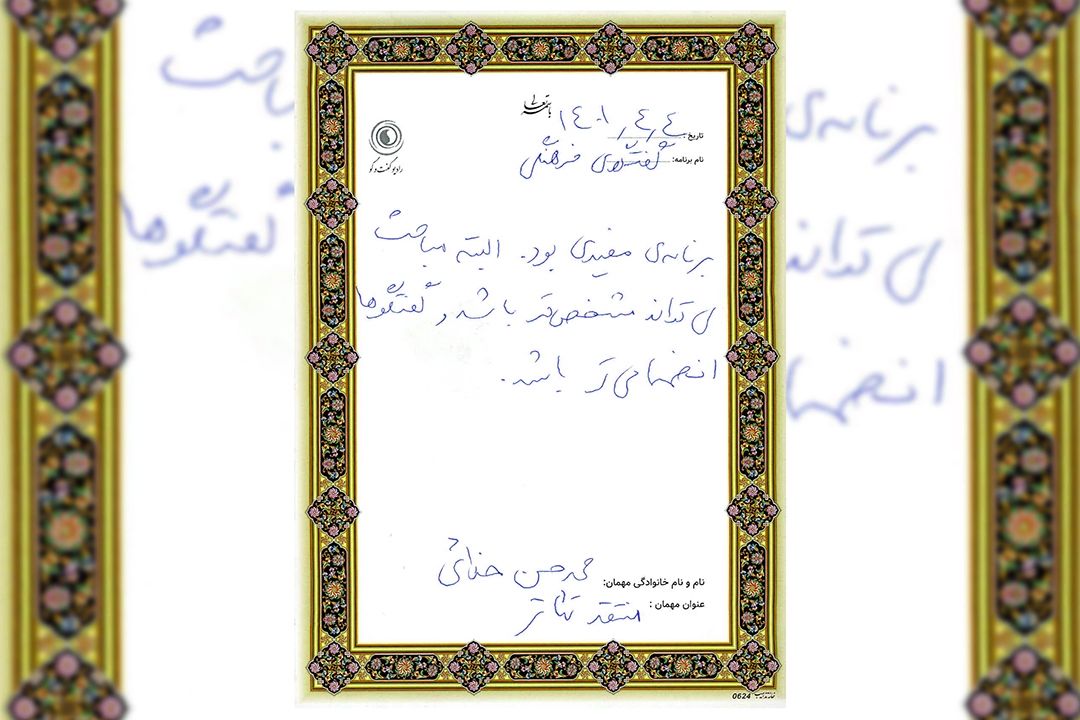 باسمه تعالی
رادیو گفت‌وگو
تاریخ: ۱۴۰۱/۴/۴
نام برنامه: گفتگوی فرهنگی
برنامه‌ی مفیدی بود. البته مباحث
می تواند مشخص‌تر باشد و گفتگوها
انضمامی‌تر باشد.
نام و نام خانوادگی مهمان: محمدحسن خدائی
عنوان مهمان : منتقد تئاتر
0624